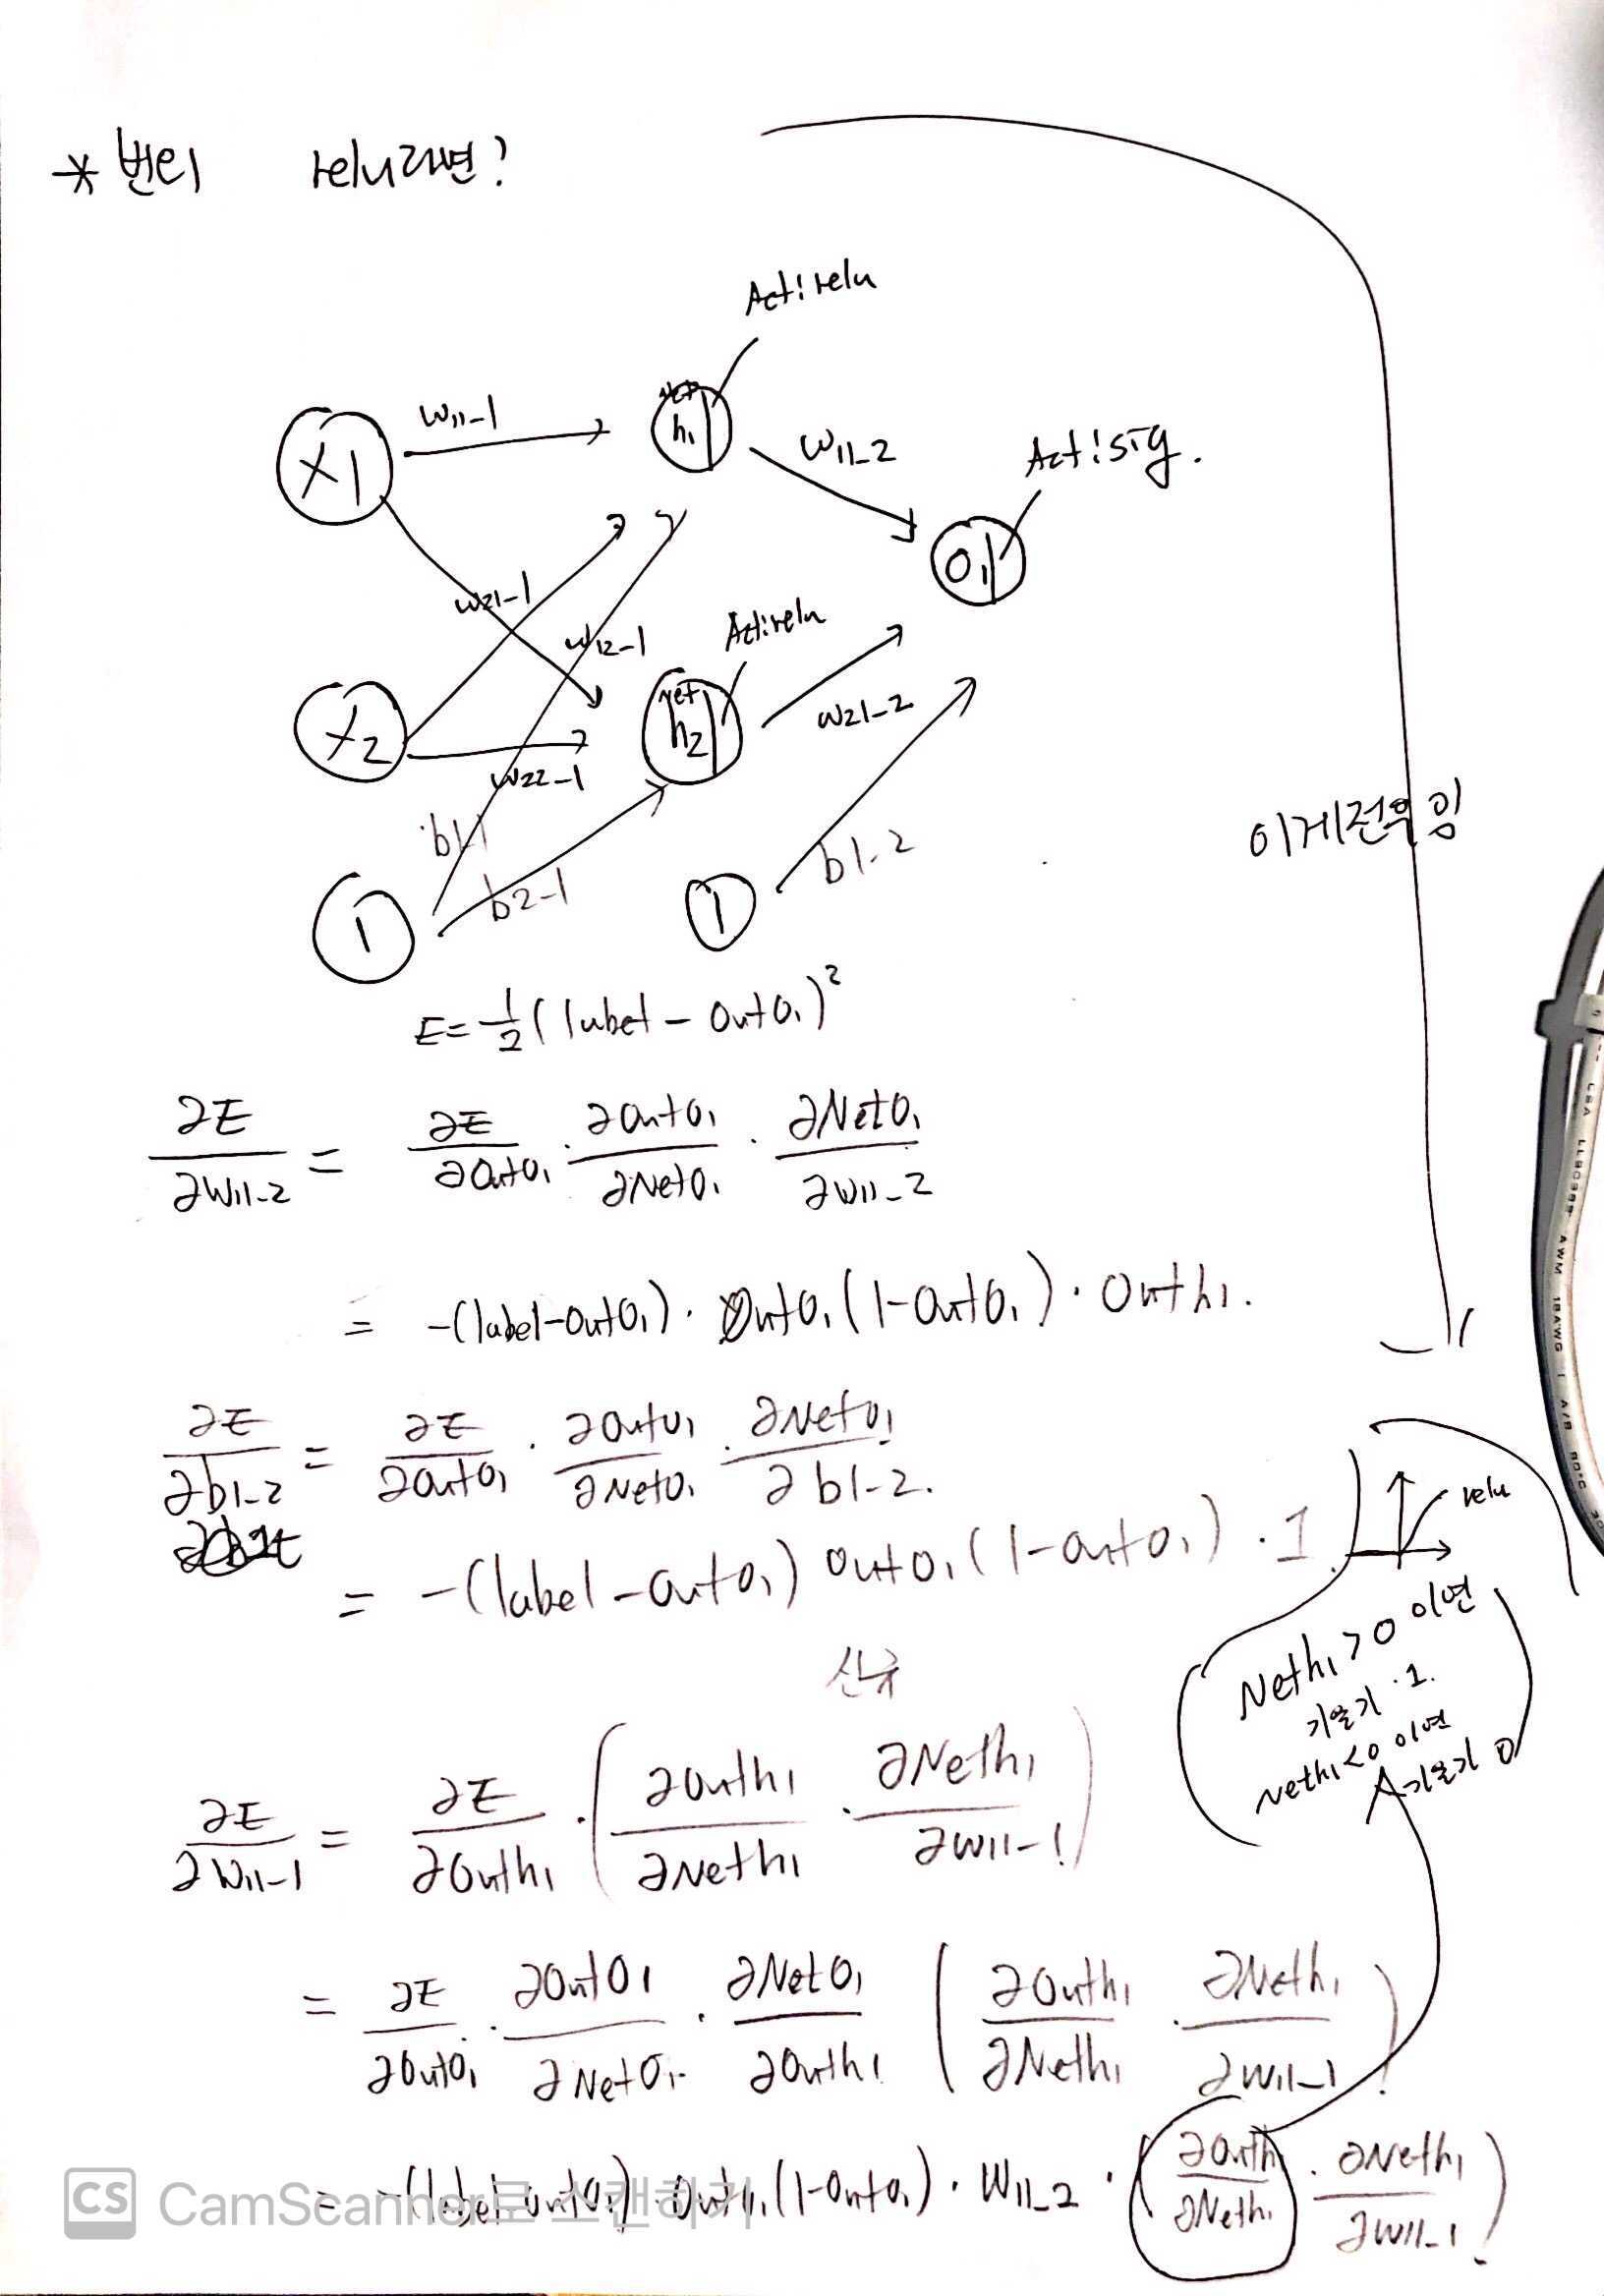 * 번외 relu라면?
Act: relu
Net
h₁
w₁₁-1
X1
w11-2
Act: sig.
O₁
w21-1
w12-1
Act: relu
Net
h2
X2
w21-2
w22-1
b1-1
b2-1
1
1
b1-2
E = 1/2 (label - OutO₁)²
∂E/∂w11-2 = ∂E/∂OutO₁ · ∂OutO₁/∂NetO₁ · ∂NetO₁/∂w11-2
= -(label-OutO₁) · OutO₁(1-OutO₁) · Outh₁.
∂E/∂b1-2 = ∂E/∂OutO₁ · ∂OutO₁/∂NetO₁ · ∂NetO₁/∂b1-2.
= -(label-OutO₁) OutO₁(1-OutO₁) · 1
relu
Neth₁>0 이면
기울기 1.
neth₁<0 이면
기울기 0
∂E/∂w11-1 = ∂E/∂Outh₁ · (∂Outh₁/∂Neth₁ · ∂Neth₁/∂w11-1)
= ∂E/∂OutO₁ · ∂OutO1/∂NetO₁ · ∂NetO₁/∂Outh₁ (∂Outh₁/∂Neth₁ · ∂Neth₁/∂w11-1)
= -(label-OutO₁) · OutO₁(1-OutO₁) · W11-2 · (∂Outh/∂Neth₁ · ∂Neth₁/∂w11-1)
CS CamScanner로 스캔하기